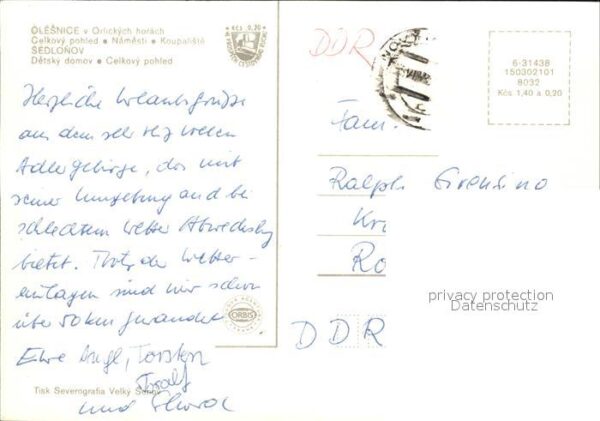 OLEŠNICE v Orlických horách
Celkový pohled • Náměstí • Koupaliště
SEDLOŇOV
Dětský domov • Celkový pohled
Kčs 0,20
Herzliche Urlaubsgrüße
aus dem sehr
Adlergebirge, das mit
seiner Umgebung auch bei
schlechtem Wetter Abwechslung
bietet. Trotz der Wetter-
einlagen sind wir schon
über 50 km gewandert
Eure Torsten
Ralf
und
Tisk Severografia Velký Šenov
ORBIS
DDR
6-31438
150302101
8032
Kčs 1,40 a 0,20
Fam.
Ralph
Kr
Ro
DDR
privacy protection
Datenschutz